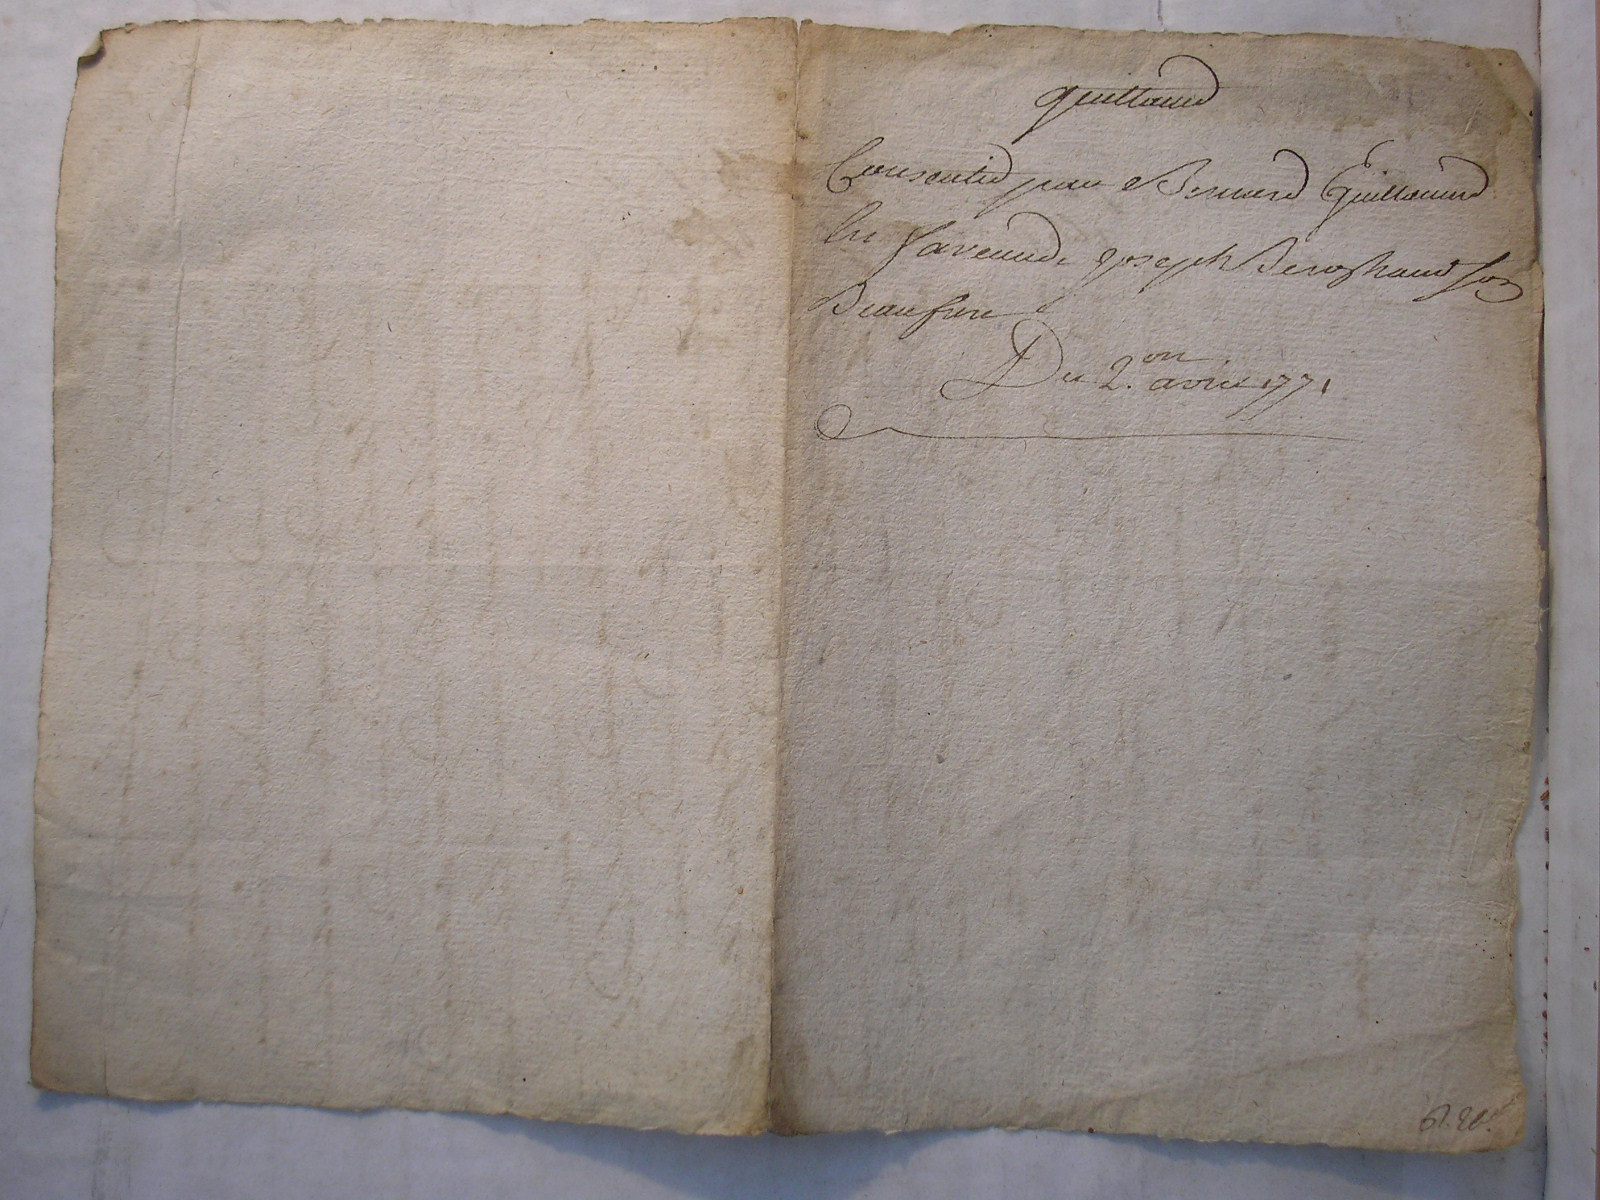 quittance
Consentie par Bernard Guillaume
En faveur de Joseph Son
Beaufrere
Du 2.on avril 1771